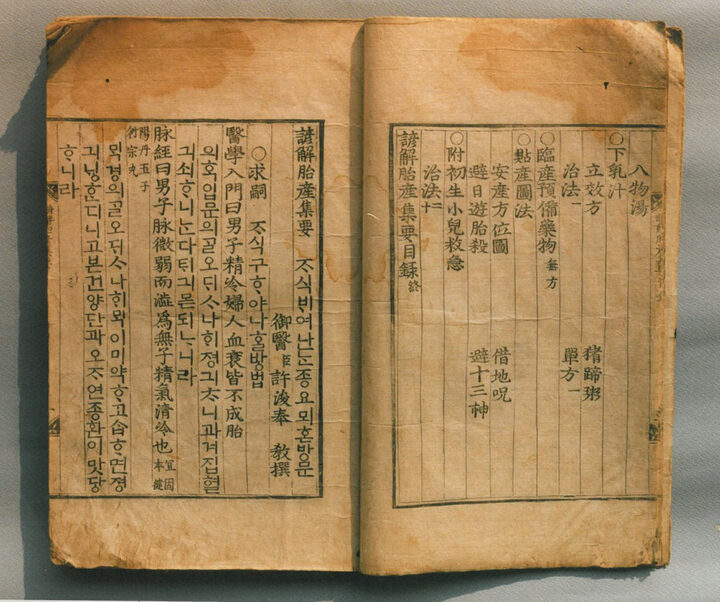 八物湯
○下乳汁
立效方 猪蹄粥
治法一 單方一
○臨産預備藥物 無方
○點産圖法
安産方位圖 借地呪
避日遊胎殺 避十三神
○附初生小兒救急
治法十二
諺解胎産集要目録終
諺解胎産集要 ᄌᆞ식ᄇᆡ여난ᄂᆞᆫ죵요뫼혼방문
御醫臣許浚奉 教撰
○求嗣 ᄌᆞ식구ᄒᆞ야나흘방법
醫學入門曰男子精冷婦人血衰皆不成胎
의ᄒᆞᆨ입문의ᄀᆞᆯ오ᄃᆡᄉᆞ나ᄒᆡ졍긔ᄎᆞ니과겨집혈
긔쇠ᄒᆞ니ᄂᆞᆫ다ᄐᆡ긔몯되ᄂᆞ니라
脉經曰男子脉微弱而澁爲無子精氣清冷也 宜固本健
陽丹五子衍宗丸
ᄆᆡᆨ경의ᄀᆞᆯ오ᄃᆡᄉᆞ나ᄒᆡᄆᆡᆨ이미약ᄒᆞ고ᄉᆞᆸᄒᆞ면졍
긔ᄂᆡᆼᄒᆞᆫ디니고본건양단과오ᄌᆞ연죵환이맛당
ᄒᆞ니라